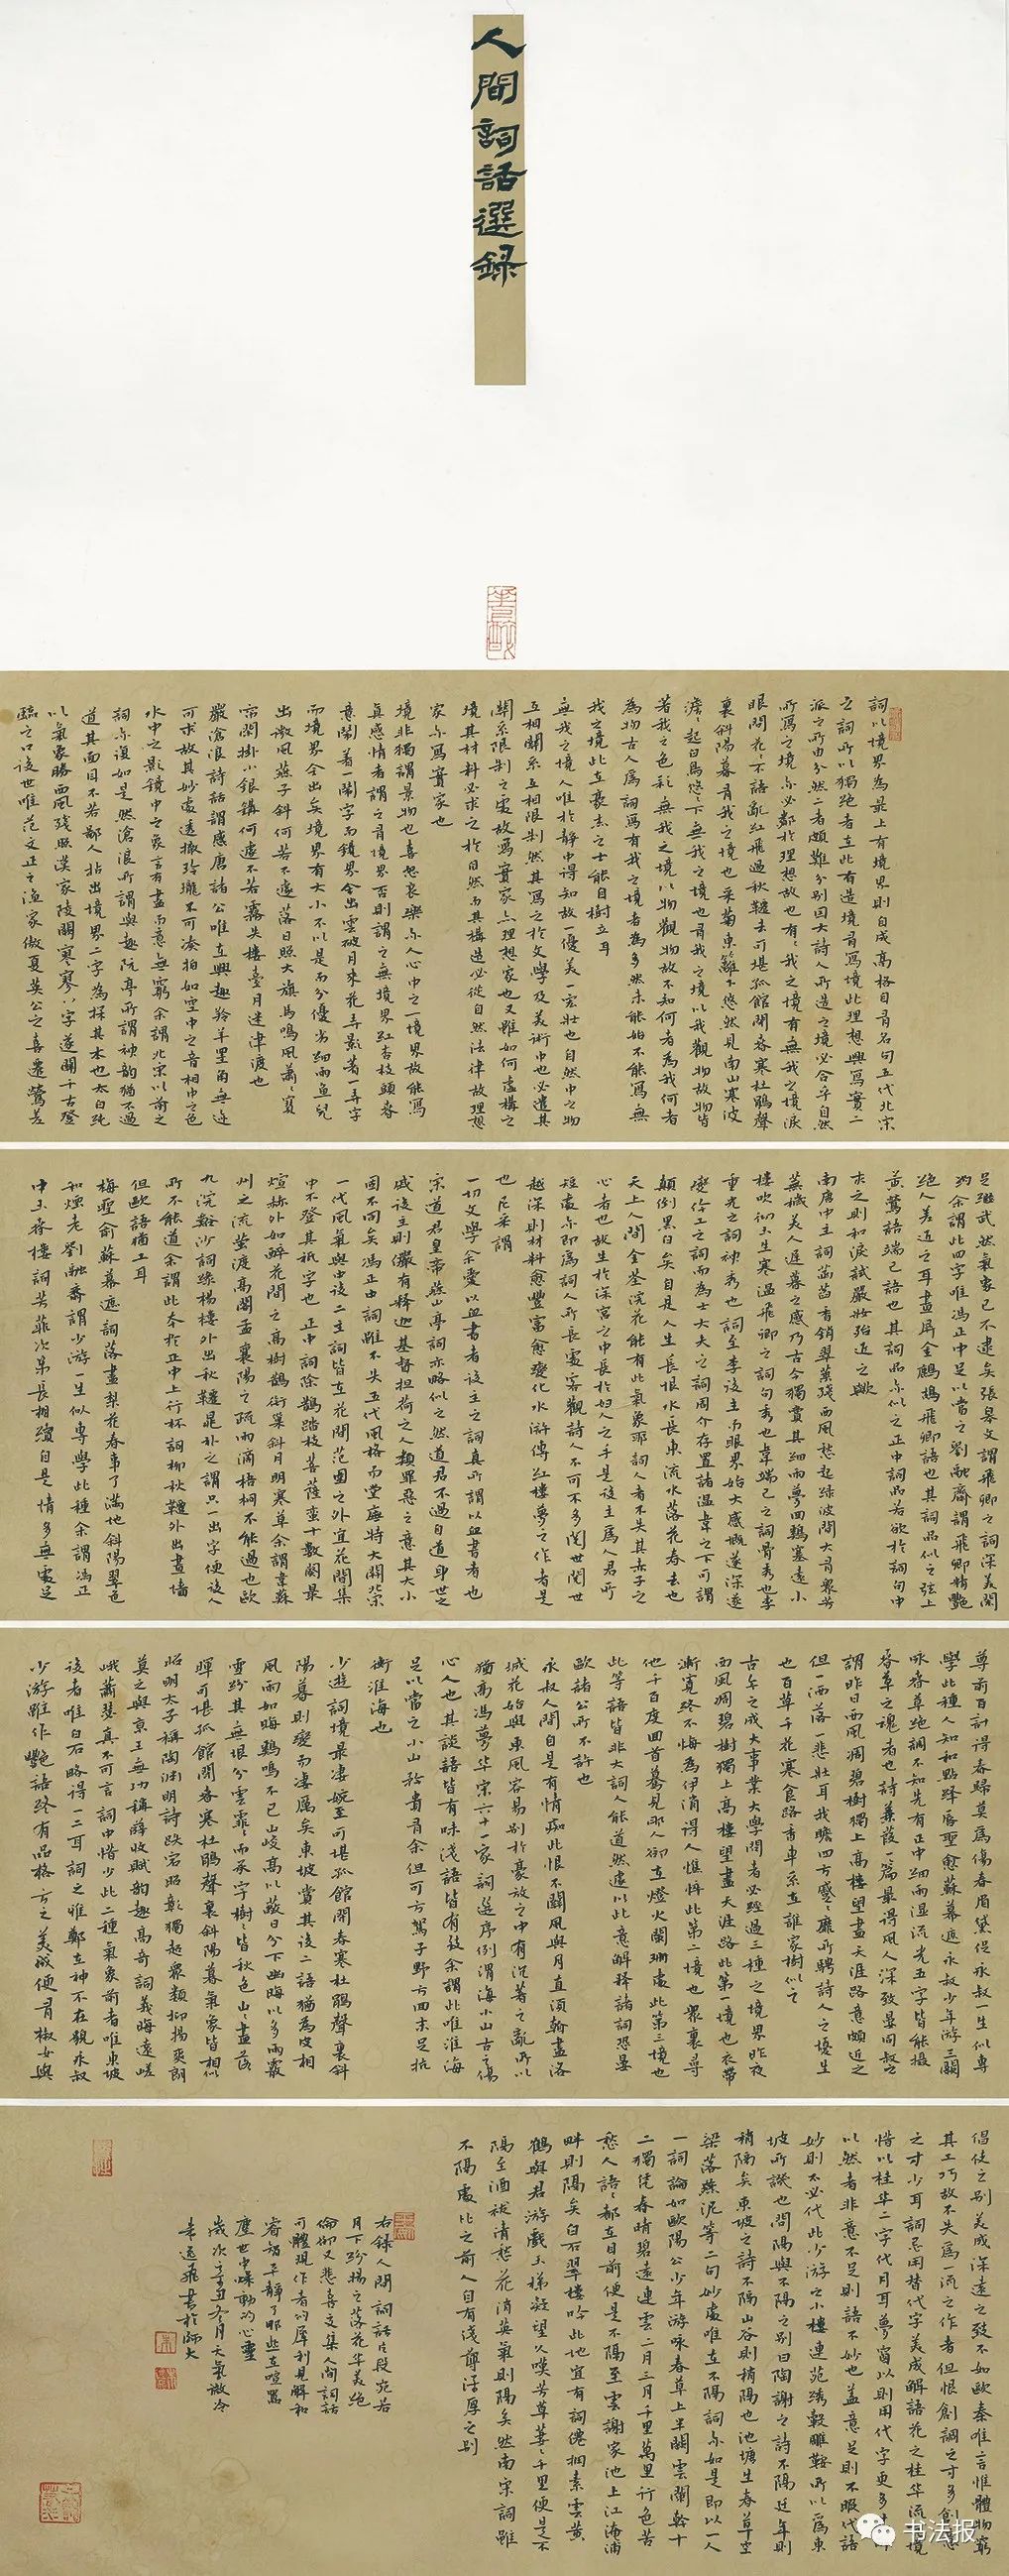 人間詞話選錄
詞以境界為最上有境界則自成高格自有名句五代北宋
之詞所以獨絕者在此有造境有寫境此理想與寫實二
派之所由分然二者頗難分別因大詩人所造之境必合乎自然
所寫之境亦必鄰於理想故也有有我之境有無我之境淚
眼問花花不語亂紅飛過秋韆去可堪孤館閉春寒杜鵑聲
裏斜陽暮有我之境也采菊東籬下悠然見南山寒波
澹澹起白鳥悠悠下無我之境也有我之境以我觀物故物皆
著我之色彩無我之境以物觀物故不知何者為我何者
為物古人為詞寫有我之境者為多然未始不能寫無
我之境此在豪杰之士能自樹立耳
無我之境人唯於靜中得
故一優美一宏壯也自然中之物
互相關系互相限制然其寫之於文學及美術中也必遺其
關系限制之處故寫實家亦理想家也又雖如何虛構之
境其材料必求之於自然而其構造必從自然法律故理想
家亦寫實家也
境非獨謂景物也喜怒哀樂亦人心中之一境界故能寫
真感情者謂之有境界否則謂之無境界紅杏枝頭春
意鬧著一鬧字而境界全出雲破月來花弄影著一弄字
而境界全出矣境界有大小不以是而分優劣細雨魚兒
出微風燕子斜何若不遠落日照大旗馬鳴風蕭蕭寶
簾閑掛小銀鉤何遽不若霧失樓臺月迷津渡也
嚴滄浪詩話謂盛唐諸公唯在興趣羚羊掛角無迹
可求故其妙處透徹玲瓏不可湊拍如空中之音相中之色
水中之影鏡中之象言有盡而意無窮余謂北宋以前之
詞亦復如是然滄浪所謂興趣阮亭所謂神韵猶不過
道其面目不若鄙人拈出境界二字為探其本也太白純
以氣象勝西風殘照漢家陵闕寥寥八字遂關千古登
臨之口後世唯范文正之漁家傲夏英公之喜遷鶯差
足繼武然氣象已不逮矣張皋文謂飛卿之詞深美閎
約余謂此四字唯馮正中足以當之劉融齋謂飛卿精艷
絕人差近之耳畫屏金鷓鴣飛卿語也其詞品似之弦上
黃鶯語端己語也其詞品亦似之正中詞品若欲於詞句中
求之則和淚試嚴妝殆近之歟
南唐中主詞菡萏香銷翠葉殘西風愁起綠波間大有眾芳
蕪穢美人遲暮之感乃古今獨賞其細雨夢回雞塞遠小
樓吹徹玉笙寒溫飛卿之詞句秀也韋端己之詞骨秀也李
重光之詞神秀也詞至李後主而眼界始大感慨遂深遂
變伶工之詞而為士大夫之詞周介存置諸溫韋之下可謂
顛倒黑白矣自是人生長恨水長東流水落花春去也
天上人間金荃浣花能有此氣象耶詞人者不失其赤子之
心者也故生於深宮之中長於婦人之手是後主為人君所
短處亦即為詞人所長處客觀詩人不可不多閱世閱世
越深則材料愈豐富愈變化水滸傳紅樓夢之作者是
也尼采謂
一切文學余愛以血書者後主之詞真所謂以血書者也
宗道君皇帝燕山亭詞亦略似之然道君不過自道身世之
戚後主則儼有釋迦基督担荷之人類罪惡之意其大小
固不同矣馮正中詞雖不失五代風格而堂廡特大開北宋
一代風氣與中後二主詞皆在花間范圍之外宜花間集
中不登其衹字也正中詞除鵲踏枝菩薩蠻十數闋最
煊赫外如醉花間之高樹鵲銜巢斜月明寒草余謂韋蘇
州之流螢渡高閣孟襄陽之疏雨滴梧桐不能過也歐
九浣谿沙詞綠楊樓外出秋韆晁補之謂只一出字便後人
所不能道余謂此本於正中上行杯詞柳外秋韆出畫墻
但歐語猶工耳
梅聖俞蘇幕遮詞落盡梨花春事了滿地斜陽翠色
和煙老劉融齋謂少游一生似專學此種余謂馮正
中玉樓春詞芳菲次第長相續自是情多無處足
尊前百計得春歸莫為傷春眉黛促永叔一生似專
學此種人知和靖點絳唇聖俞蘇幕遮永叔少年游三闋
咏春草絕調不知先有正中細雨濕流光五字皆能攝
春草之魂者也詩蒹葭一篇最得風人深致晏同叔之
謂昨日西風凋碧樹獨上高樓望盡天涯路意頗近之
但一洒落一悲壯耳我瞻四方蹙蹙靡所騁詩人之憂生
也百草千花寒食路香車系在誰家樹似之
古今之成大事業大學問者必經過三種之境界昨夜
西風凋碧樹獨上高樓望盡天涯路此第一境也衣帶
漸寬終不悔為伊消得人憔悴此第二境也眾裏尋
他千百度回首驀見那人卻在燈火闌珊處此第三境也
此等語皆非大詞人不能道然遽以此意解釋諸詞恐晏
歐諸公所不許也
永叔人間自是有情痴此恨不關風與月直須看盡洛
城花始與東風容易別於豪放之中有沉著之致所以
猶高馮夢華宋六十一家詞選序例謂淮海小山古之傷
心人也其談語皆有味淺語皆有致余謂此唯淮海
足以當之小山矜貴有余但可方駕子野方回未足抗
衡淮海也
少遊詞境最凄婉至可堪孤館閉春寒杜鵑聲裏斜
陽暮則變而凄厲矣東坡賞其後二語猶為皮相
風雨如晦雞鳴不已山峻高以蔽日兮下幽晦以多雨霰
雪紛其無垠兮雲霏霏而承宇樹樹皆秋色山山盡落
暉可堪孤館閉春寒杜鵑聲裏斜陽暮氣象皆相似
昭明太子稱陶淵明詩跌宕昭彰獨超眾類抑揚爽朗
莫之與京王無功稱薛收賦韵趣高奇詞義晦遠嵯
峨蕭瑟真不可言詞中惜少此二種氣象前者唯東坡
後者唯白石略得一二耳詞之雅鄭在神不在貌永叔
少游雖作艷語終有品格方之美成便有淑女與
倡伎之別美成深遠之致不如歐秦唯言情體物窮
其工巧故不失為一流之作者但恨創調之才多創意
之才少耳詞忌用替代字美成解語花之桂華流境
惜以桂華二字代月耳夢窗以則用代字更多
以然者非意不足則語不妙也蓋意足則不暇代語
妙則不必代此少游之小樓連苑綉轂雕鞍所以為東
坡所譏也問隔與不隔之別曰陶謝之詩不隔延年則
稍隔矣東坡之詩不隔山谷則稍隔也池塘生春草空
梁落燕泥等二句妙處唯在不隔詞亦如是即以一人
一詞論如歐陽公少年游咏春草上半闋雲闌幹十
二獨凭春晴碧遠連雲二月三月千里萬里行色苦
愁人語語都在目前便是不隔至雲謝家池上江淹浦
畔則隔矣白石翠樓吟此地宜有詞僊擁素雲黃
鶴與君游戲玉梯凝望久嘆芳草萋萋千里便是不
隔至酒祓清愁花消英氣則隔矣然南宋詞雖
不隔處比之前人自有淺薄深厚之別
右錄人間詞話片段宛若
月下紛揚之落花華美絕
倫卻又悲喜交集人間詞話
可體現作者的犀利見解和
睿智平靜了那些在喧囂
塵世中躁動的心靈
歲次辛丑冬月天氣微冷
於師大
书法报